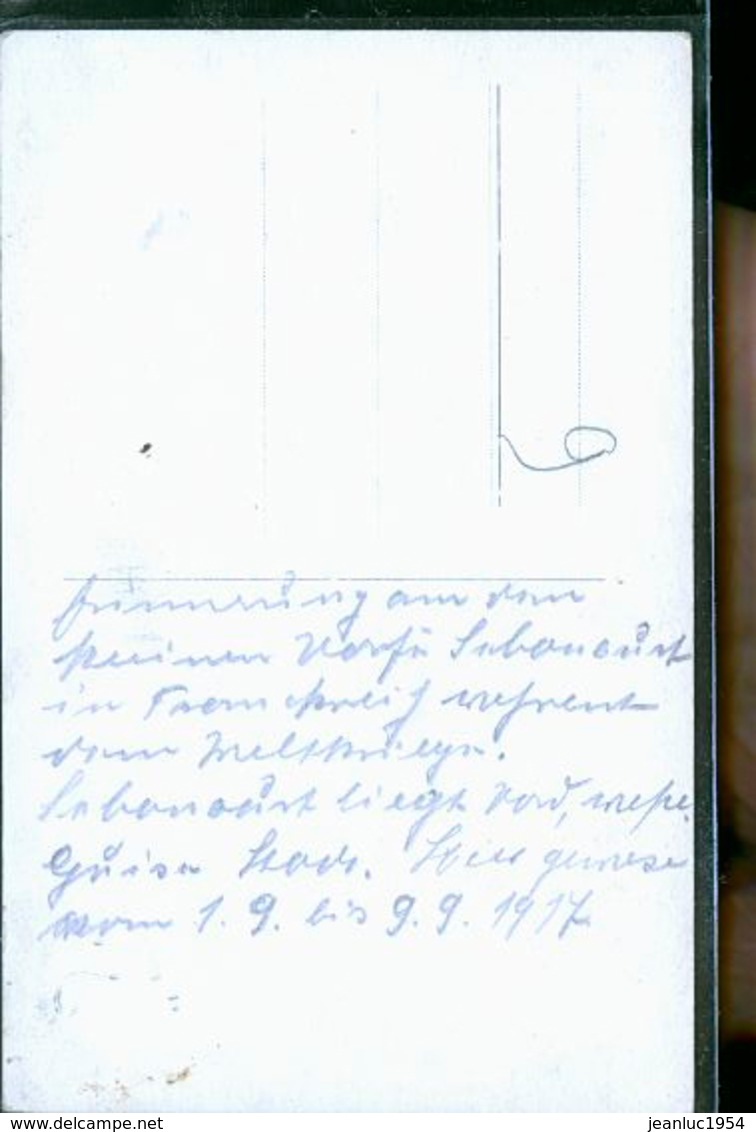 Erinnerung an den
kleinen Dorfe Seboncourt
in Frankreich wehrent
dem Weltkriege.
Seboncourt liegt
Guise Stadt. Hier gewese
vom 1. 9. bis 9. 9. 1917
www.delcampe.net
jeanluc1954